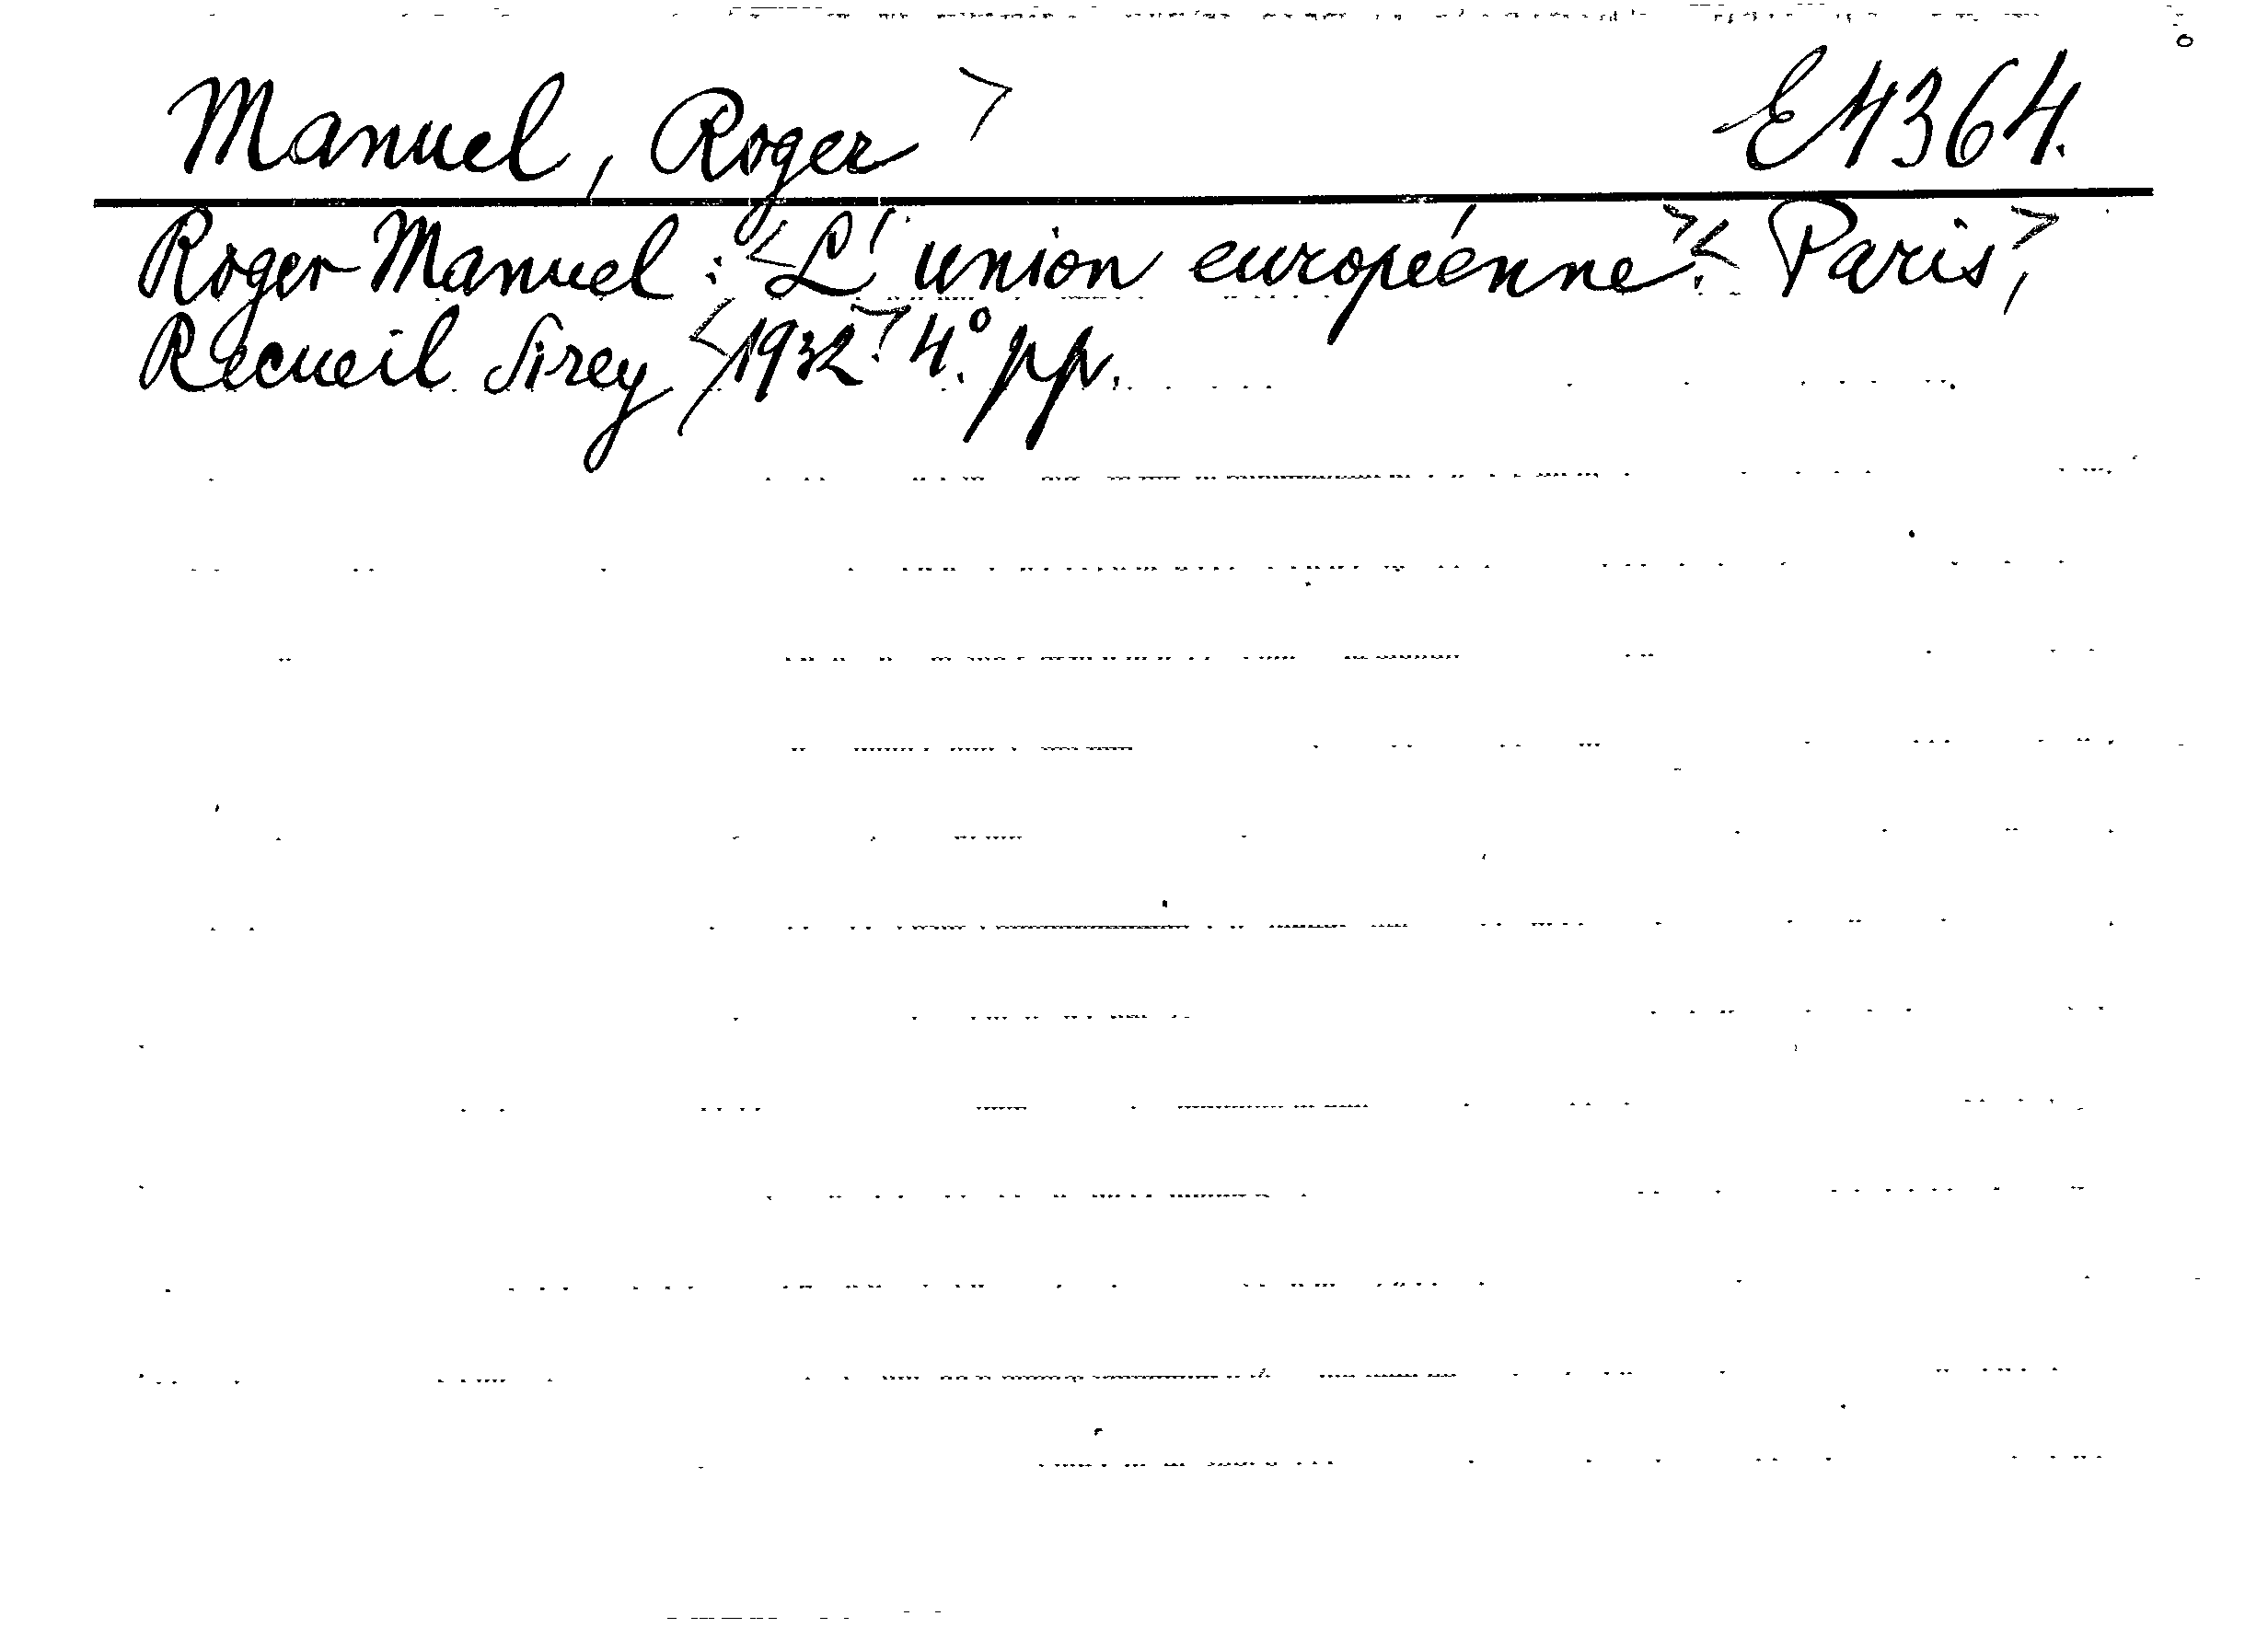 Manuel, Roger> E4364.
Roger Manuel: <L'union européenne>. <Paris>,
Recueil Sirey, <1932>. 4°. pp.